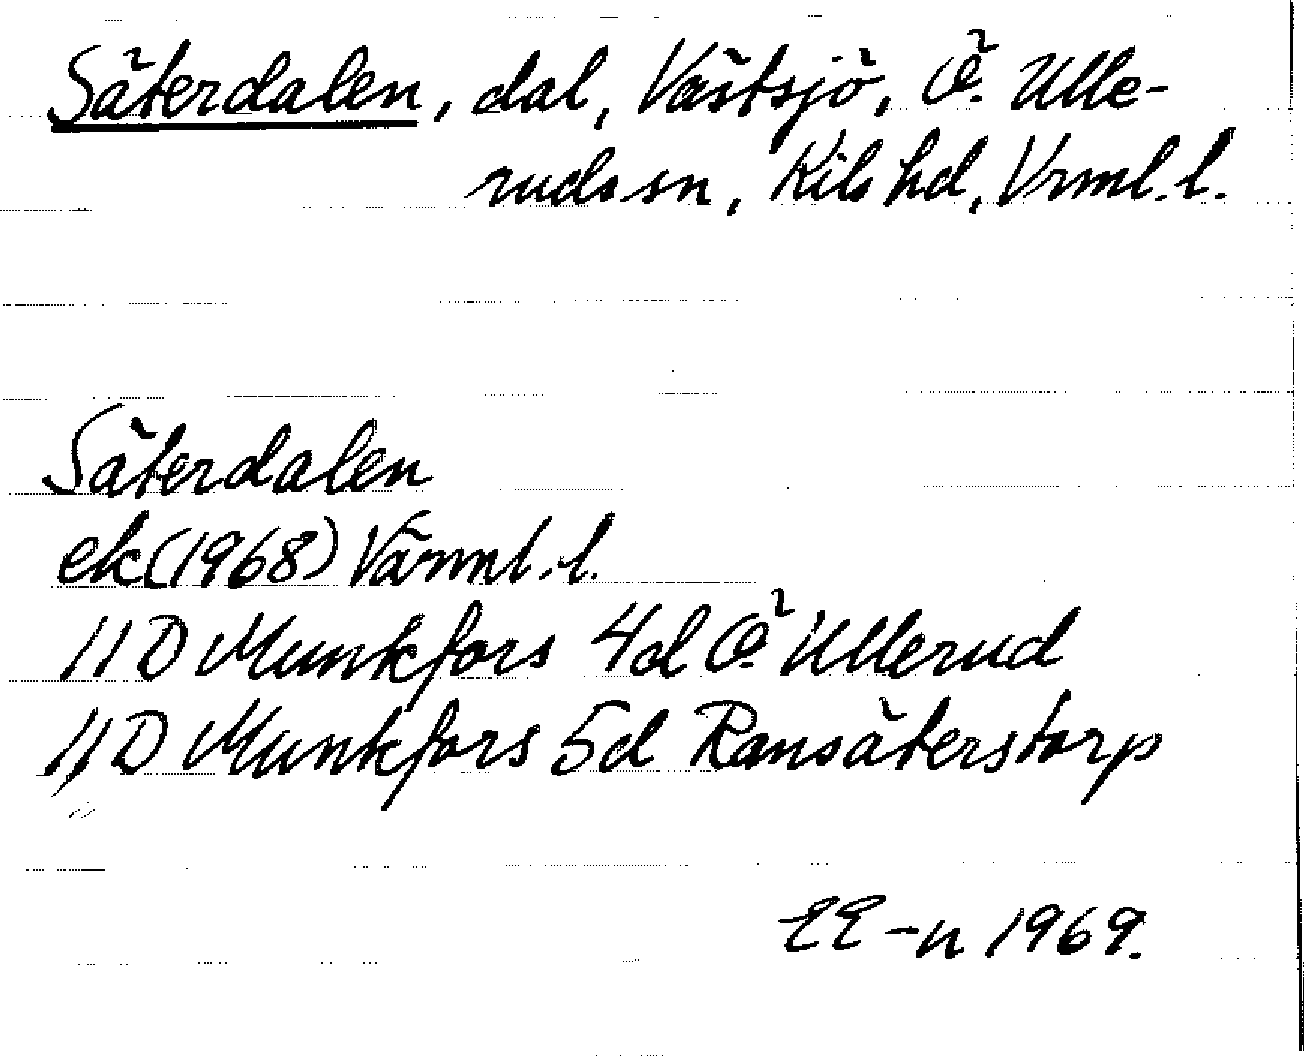 Säterdalen, dal, Västsjö, Ö. Ulle-
ruds sn, Kils hd, Vrml. l.
Säterdalen
ek (1968) Värml. l.
11D Munkfors 4d Ö. Ullerud
11D Munkfors 5d Ransäterstorp
EE-n 1969.